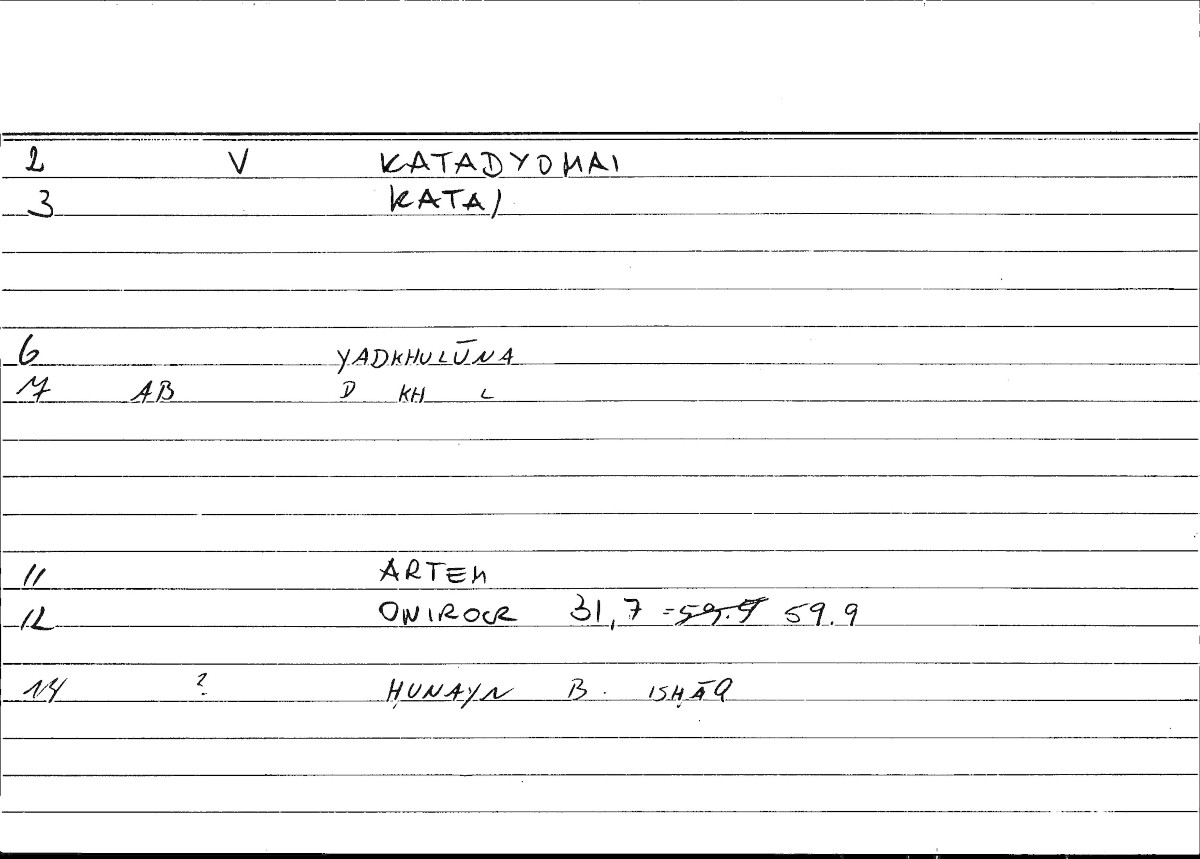 2 V KATADYOMAI
3 KATA/
6 YADKHULŪNA
7 AB D KH L
11 ARTEM
12 ONIROCR 31,7 = 59.9 59.9
14 ? ḤUNAYN B. ISḤĀQ